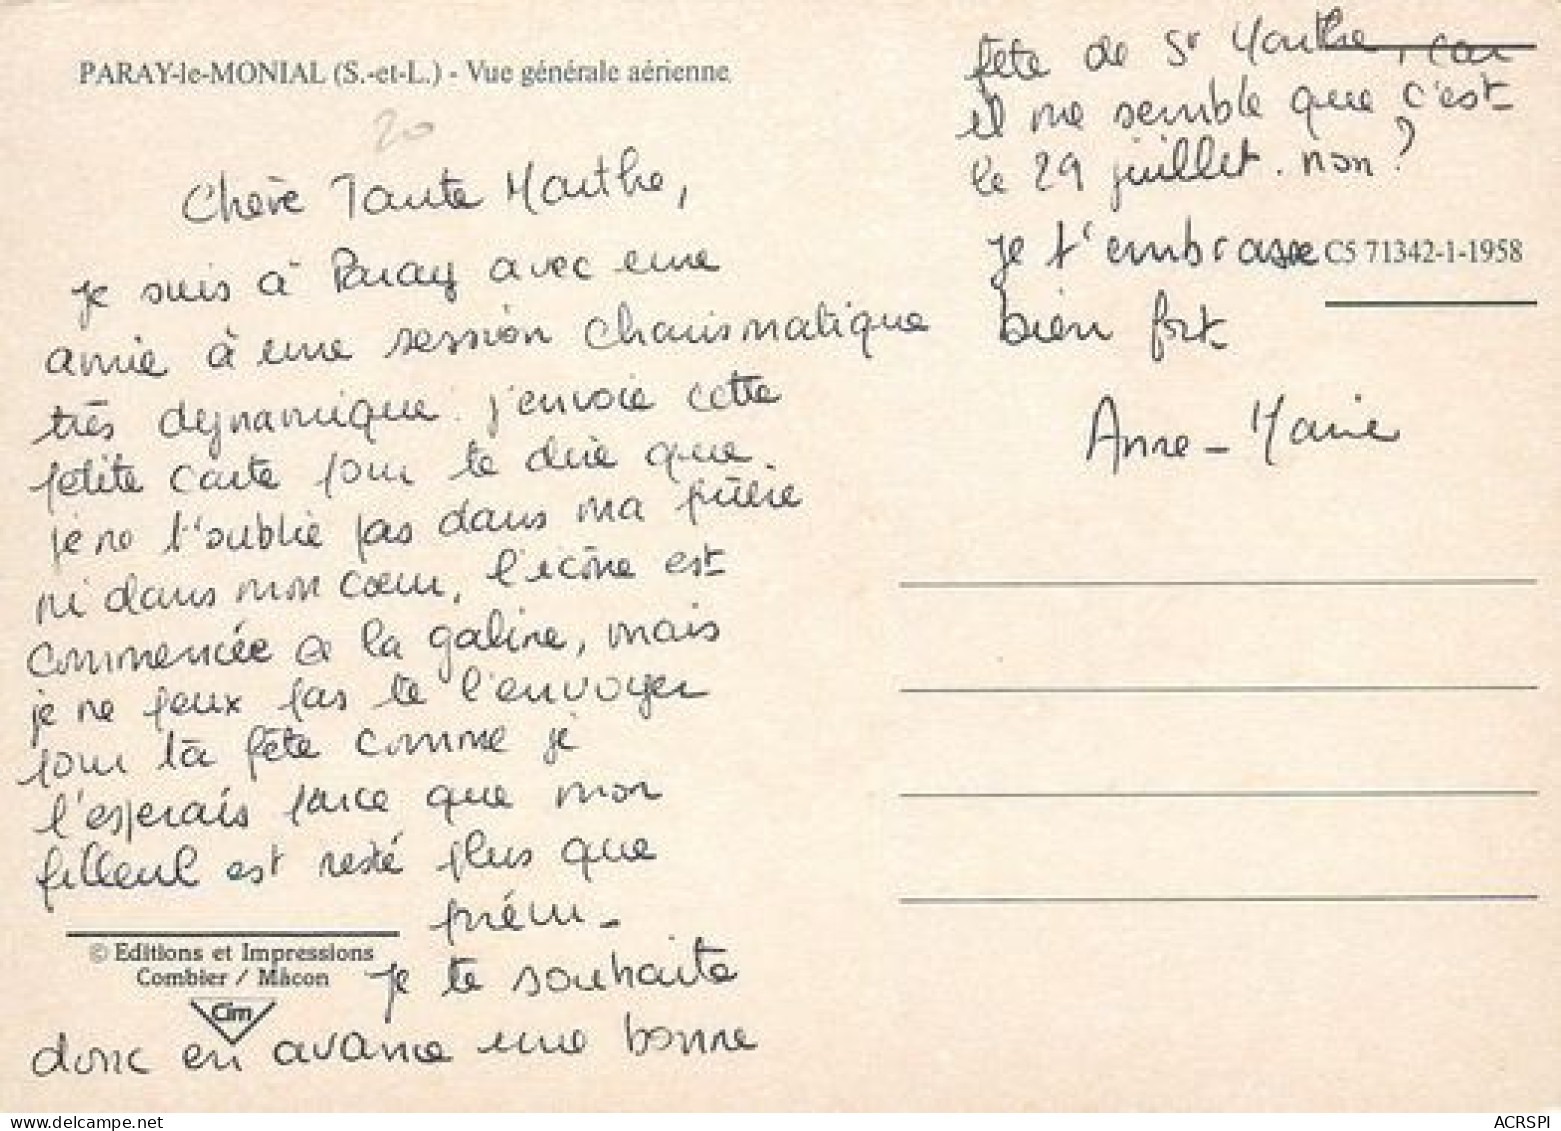 PARAY-le-MONIAL (S.-et-L.) - Vue générale aérienne
20
Chère Tante Marthe,
je suis à Paray avec une
amie à une session charismatique
très dynamique. j'envoie cette
petite carte pour te dire que
je ne t'oublie pas dans ma prière
ni dans mon cœur, l'icône est
commencée à la galine, mais
je ne peux pas te l'envoyer
pour ta fête comme je
l'espérais parce que mon
filleul est resté plus que
prévu -
© Editions et Impressions
Combier / Mâcon
Cim
je te souhaite
donc en avance une bonne
fête de St Marthe, car
il me semble que c'est
le 29 juillet. non?
je t'embrasse
C5 71342-1-1958
bien fort
Anne-Marie
ACRSPI